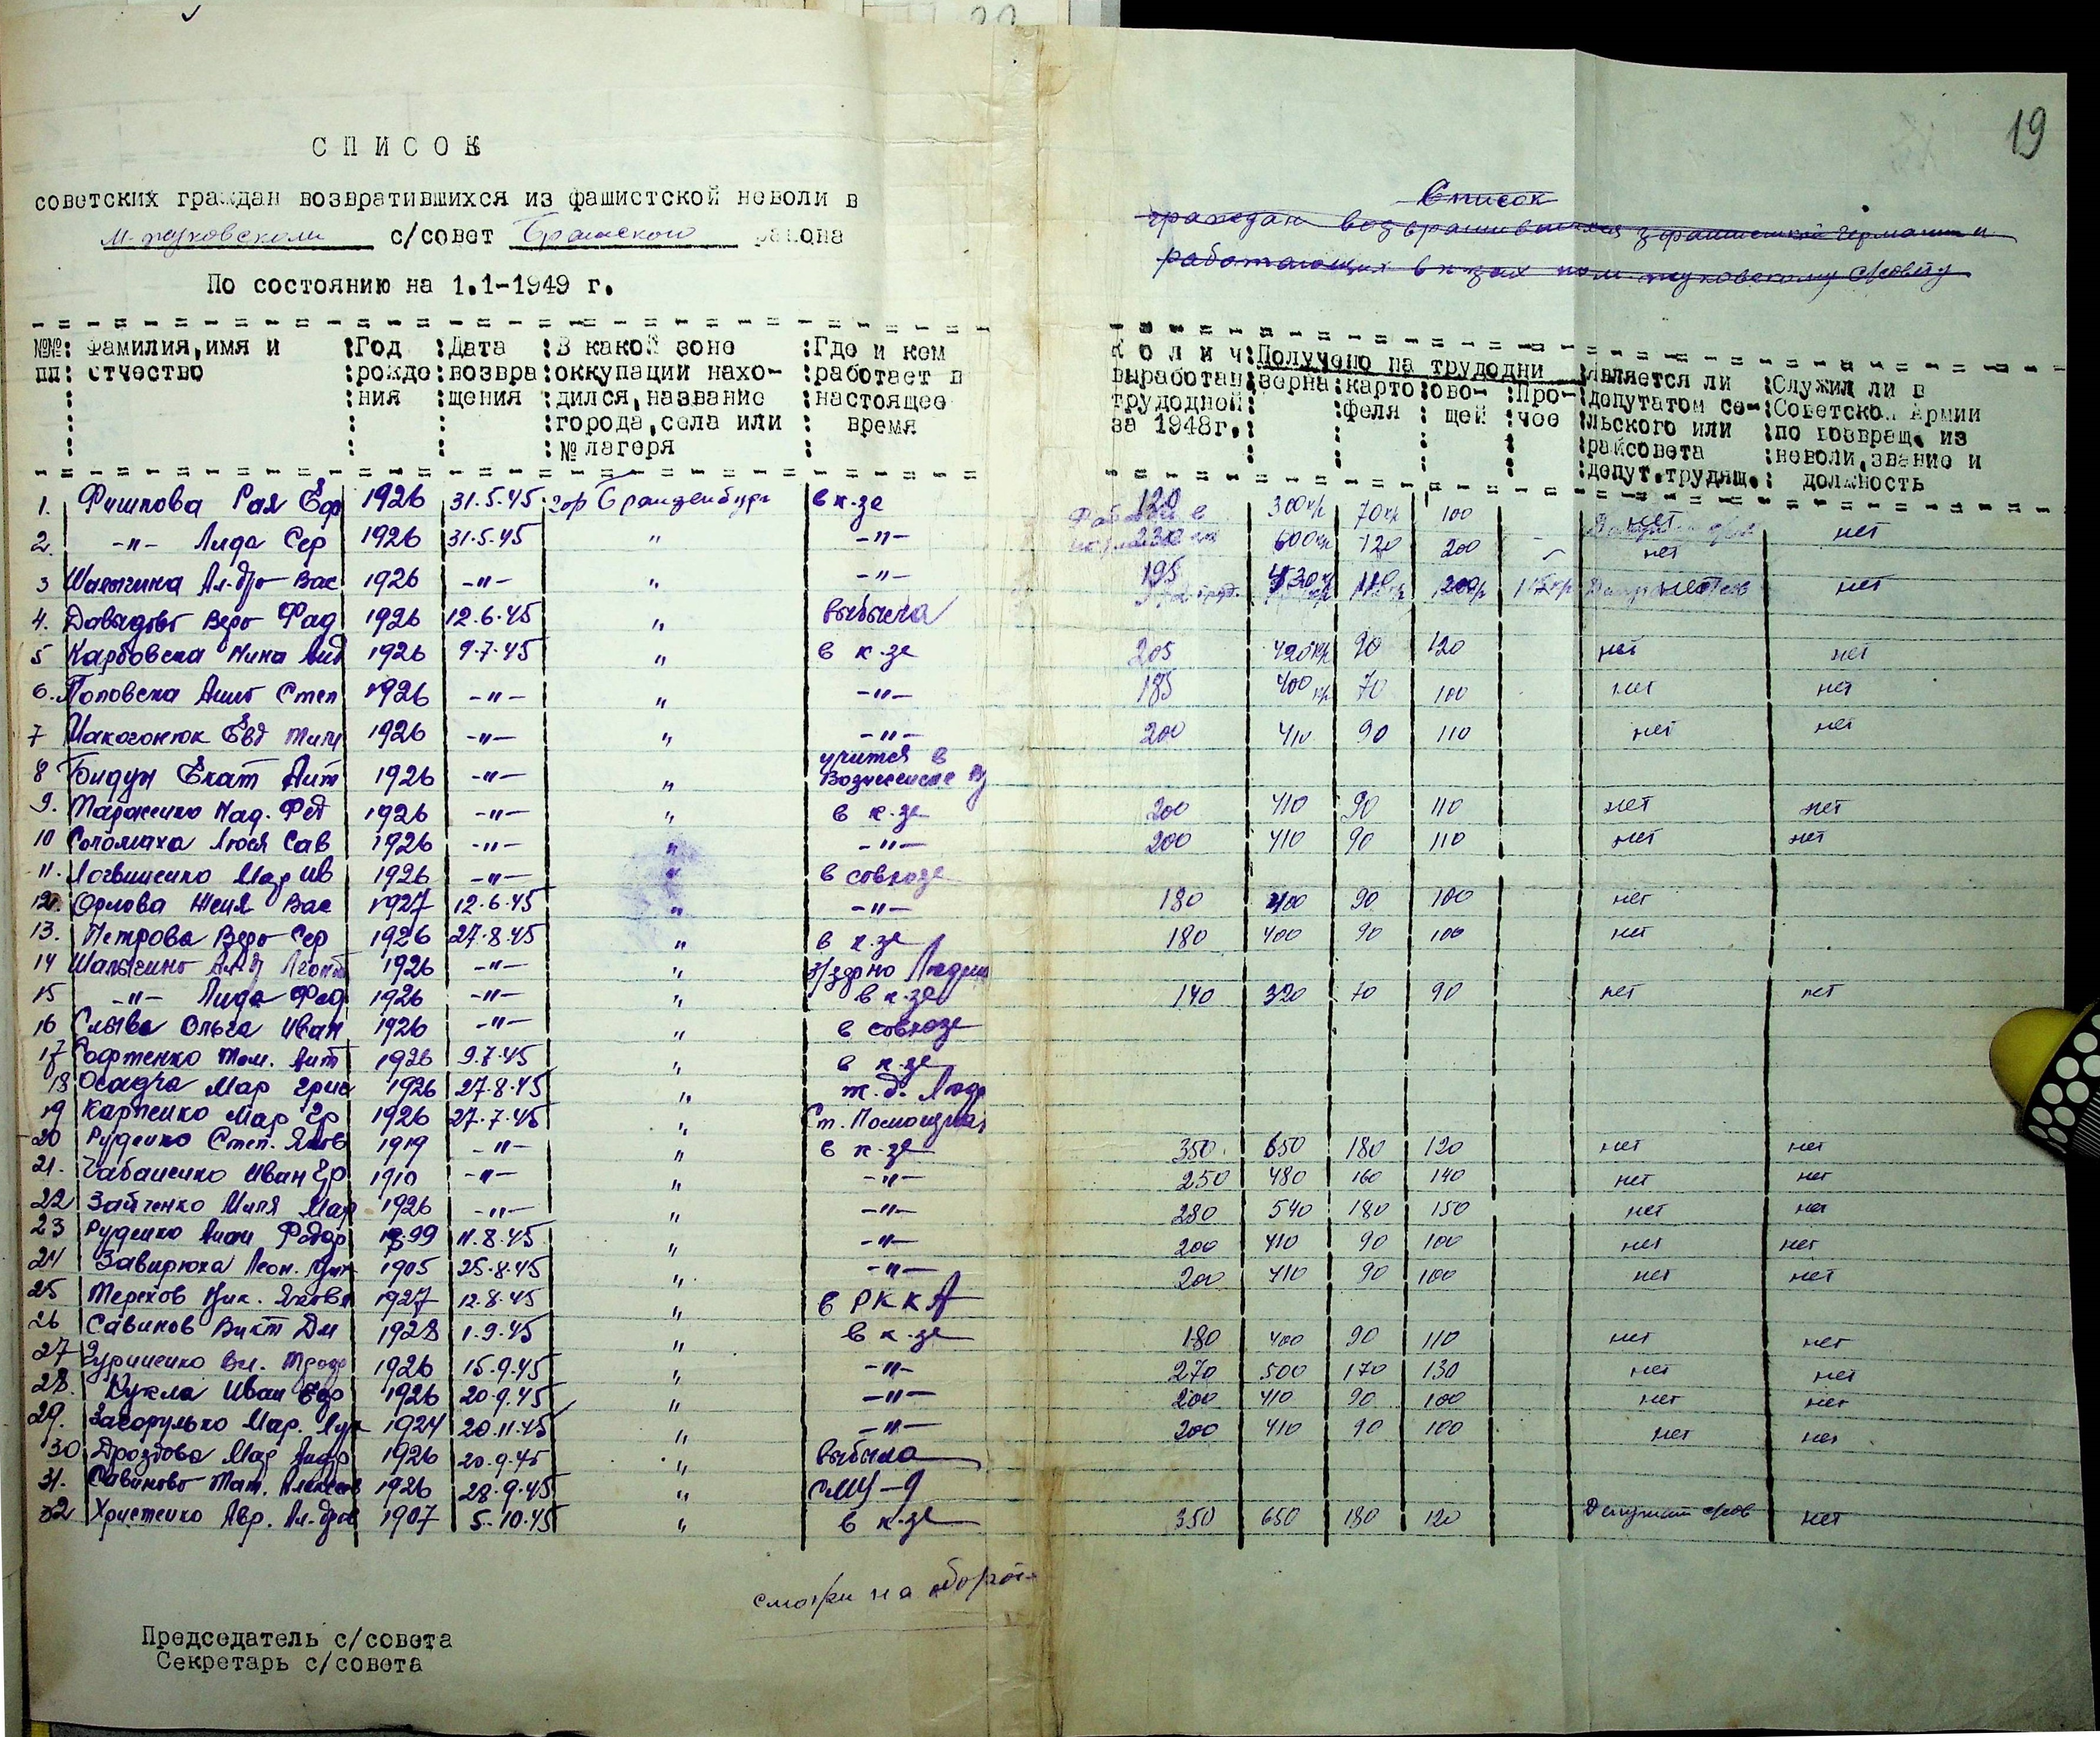 19
СПИСОК
советских граждан возвратившихся из фашистской неволи в
с/совет Братского района
По состоянию на 1.1-1949 г.
Список
граждан возвратившихся з фашистской германии и
работающих в к-зах
№№ пп : Фамилия, имя и отчество : Год рождения : Дата возвращения : В какой зоне оккупации находился, название города, села или № лагеря : Где и кем работает в настоящее время
Колич выработан трудодней за 1948г. : Получено на трудодни : зерна : картофеля : овощей : Прочее : Является ли депутатом сельского или райсовета депут.трудящ. : Служил ли в Советской Армии по возвращ. из неволи, звание и должность
1. Рая Еф 1926 31.5.45 гор Бранденбург в к-зе 120 300 кг 70 кг 100 нет нет
2. -"- Лида Сер 1926 31.5.45 " -"- 230 600 кг 120 200 нет
3 Шалыгина Ал-др Вас 1926 -"- " -"- 195 нет нет
4. Вера Фад 1926 12.6.45 " выбыла
5 Карбовска Нина 1926 9.7.45 " в к-зе 205 420 кг 90 120 нет нет
6. Поповска Степ 1926 -"- " -"- 185 400 кг 70 100 нет нет
7 Макогонюк Евд 1926 -"- " -"- 200 410 90 110 нет нет
8 Бидун Екат Ант 1926 -"- " учится в Вознесенске
9. Над. Фед 1926 -"- " в к-зе 200 410 90 110 нет нет
10 Соломаха Люся Сав 1926 -"- " -"- 200 410 90 110 нет нет
11. Логвиненко Мар Ив 1926 -"- " в совхозе
12. Орлова Женя Вас 1927 12.6.45 " -"- 180 400 90 100 нет
13. Петрова Вера Сер 1926 27.8.45 " в к-зе 180 400 90 100 нет
14 1926 -"- "
15 -"- Лида Фад 1926 -"- " в к-зе 140 320 70 90 нет нет
16 Слыва Ольга Иван 1926 -"- " в совхозе
17 Том. Ант 1926 9.7.45 " в к-зе
18 Осадча Мар Григ 1926 27.8.45 "
19 Карпенко Мар Гр 1926 27.7.45 " Ст. Помощная
20 Руденко Степ. Яков 1919 -"- " в к-зе 350 650 180 120 нет нет
21. Чабаненко Иван Гр 1910 -"- " -"- 250 480 160 140 нет нет
22 Зайченко Миля Мар 1926 -"- " -"- 280 540 180 150 нет нет
23 Руденко Федор 1899 11.8.45 " -"- 200 410 90 100 нет нет
24 Завирюха Леон. 1905 25.8.45 " -"- 200 410 90 100 нет нет
25 Терехов Ник. Яковл 1927 12.8.45 " в РККА
26 Савинов Викт Дм 1928 1.9.45 " в к-зе 180 400 90 110 нет нет
27 Гуриненко Вл. 1926 15.9.45 " -"- 270 500 170 130 нет нет
28. Кукла Иван Еф 1926 20.9.45 " -"- 200 410 90 100 нет нет
29. Загорулько Мар. 1924 20.11.45 " -"- 200 410 90 100 нет нет
30 Дроздова Мар Андр 1926 20.9.45 " выбыла
31. Савинова Тат. 1926 28.9.45 " СМЦ-9
32 Христенко Авр. Ал-др 1907 5.10.45 " в к-зе 350 650 180 120 Депутат нет
смотри на оборот
Председатель с/совета
Секретарь с/совета